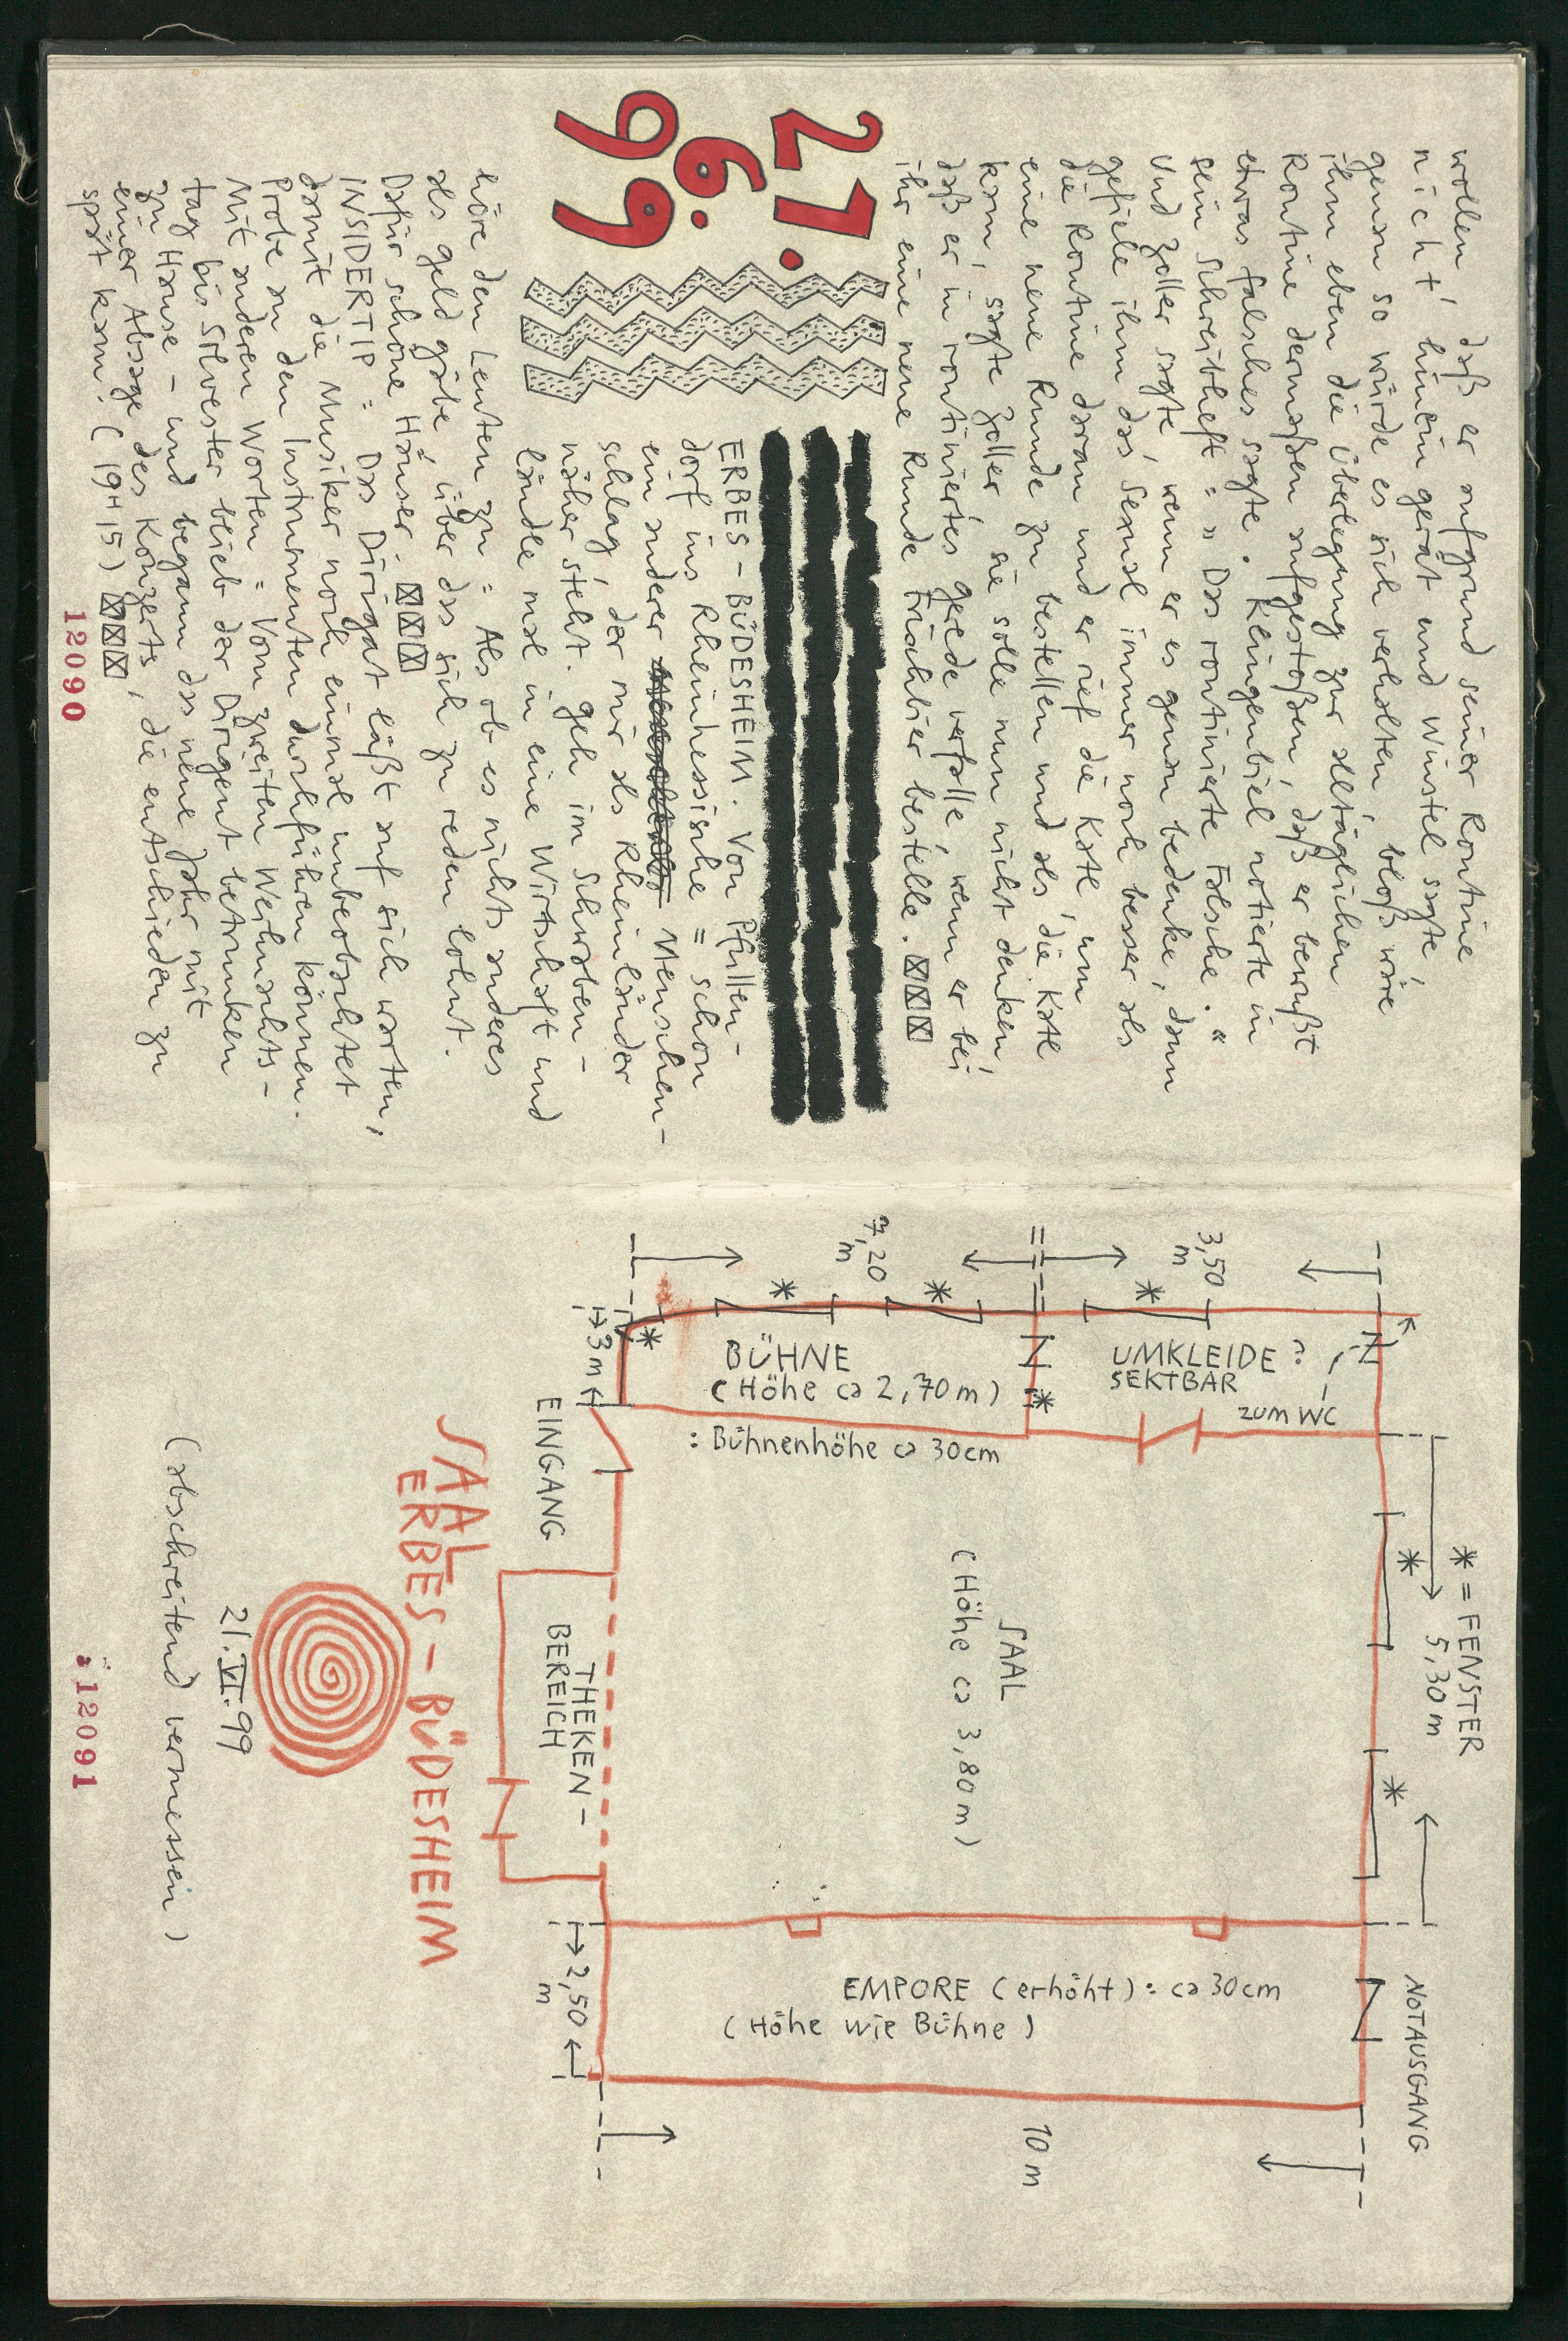 wollen, daß er aufgrund seiner Routine
nicht hinein gerät und Winstel sagte,
genau so würde es sich verhalten, bloß wäre
ihm eben die Überlegung zur alltäglichen
Routine dermaßen aufgestoßen, daß er bewußt
etwas falsches sagte. Klingenbiel notierte in
sein Schreibheft = » Das routinierte Falsche. «
Und Zoller sagte, wenn er es genau bedenke, dann
gefiele ihm das Sexual immer noch besser als
die Routine daran und er rief die Kate, um
eine neue Runde zu bestellen und als die Kate
kam, sagte Zoller, sie solle nun nicht denken,
daß er in routiniertes Gerede verfalle, wenn er bei
ihr eine neue Runde Frischbier bestelle.
21.
6.
99
ERBES-BÜDESHEIM. Von Pfullen-
dorf ins Rheinhessische = schon
ein anderer Menschen-
schlag, der mir als Rheinländer
näher steht. Geh im Schwaben-
ländle mal in eine Wirtschaft und
höre den Leuten zu = Als ob es nichts anderes
als Geld gäbe, über das sich zu reden lohnt.
Dafür schöne Häuser.
INSIDERTIP = Das Dirigat läßt auf sich warten,
damit die Musiker noch einmal unbeobachtet
Probe an den Instrumenten durchführen können.
Mit anderen Worten = Vom zweiten Weihnachts-
tag bis Silvester blieb der Dirigent betrunken
zu Hause - und begann das neue Jahr mit
einer Absage des Konzerts, die entschieden zu
spät kam. (19H15)
12090
* = FENSTER
5,30 m
NOTAUSGANG
3,50
m
7,20
m
UMKLEIDE?
SEKTBAR
ZUM WC
BÜHNE
(Höhe ca 2,70 m)
: Bühnenhöhe ca 30cm
3 m
SAAL
(Höhe ca 3,80 m)
EMPORE (erhöht): ca 30cm
(Höhe wie Bühne)
10 m
EINGANG
THEKEN-
BEREICH
2,50
m
SAAL
ERBES-BÜDESHEIM
21.VI.99
(abschreitend vermessen)
12091